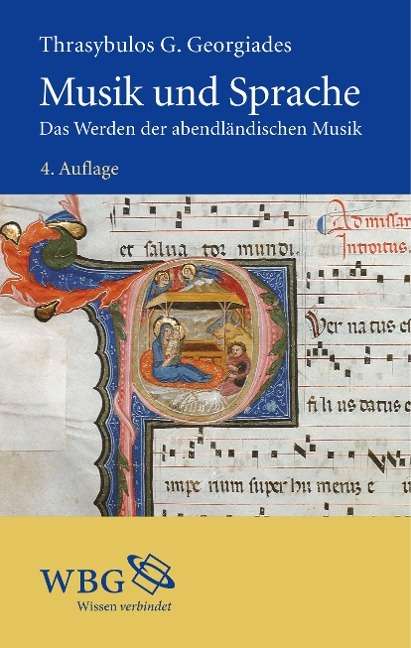 Thrasybulos G. Georgiades
Musik und Sprache
Das Werden der abendländischen Musik
4. Auflage
Ad missam
Introitus.
et salva tor mundi.
Uer na tus es
fi li us datus e
impe rium super hu merum e
WBG
Wissen verbindet